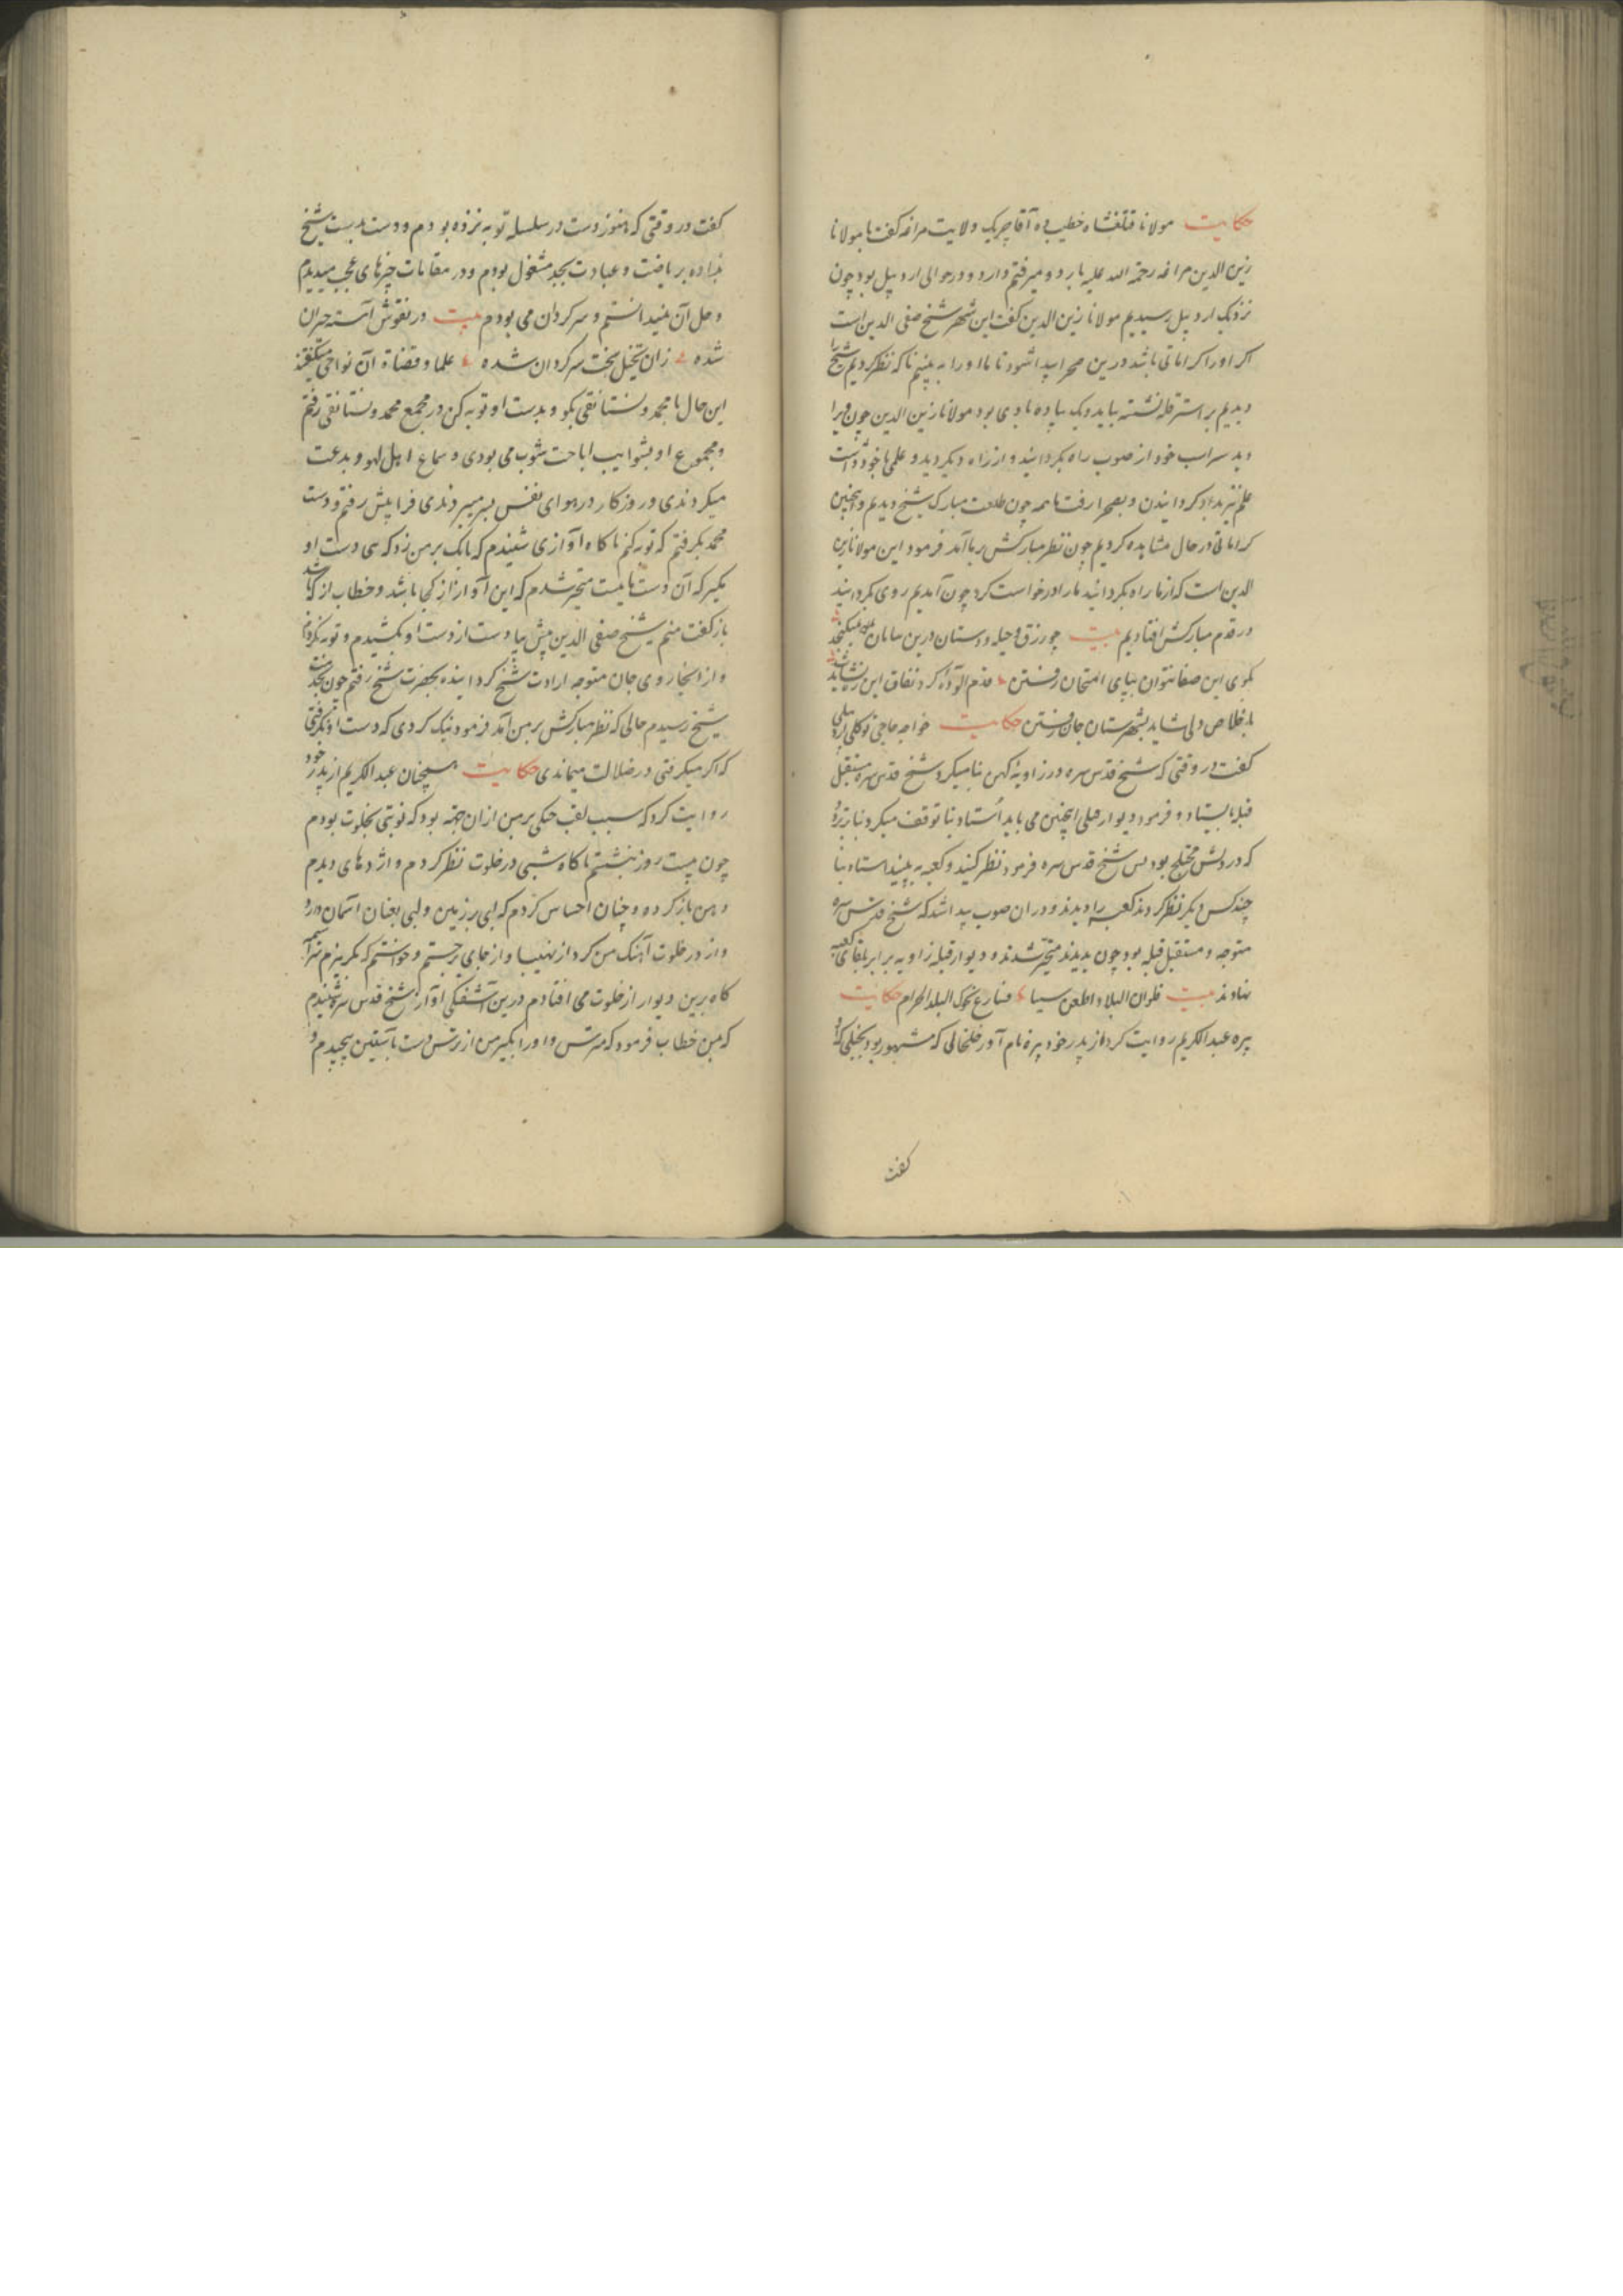 حکایت مولانا قتلغشاه خطیب ده آقا چریک ولایت مراغه گفت با مولانا
زین الدین مراغه رحمة الله علیه باردو میرفتم و اردو در حوالی اردبیل بود چون
نزدیک اردبیل رسیدیم مولانا زین الدین گفت این شهر شیخ صفی الدین است
اگر او را کراماتی باشد درین صحرا پیدا شود تا ما او را به بینیم ناگه نظر کردیم شیخ را
دیدیم بر استر قله نشسته بیاید و یک پیاده با وی بود مولانا زین الدین چون ویرا
دید سر اسب خود از صوب راه بگردانید و از راه دیگر دید و علمی با خود داشت
علم نیز بدو گردانیدن و بصحرا رفت ما همه چون طلعت مبارک شیخ دیدیم و اینچنین
کراماتی در حال مشاهده کردیم چون نظر مبارکش بر ما آمد فرمود این مولانا زین
الدین است که از ما راه بگردانید ما را درخواست کرد چون آمدیم روی بگردانید
در قدم مبارکش افتادیم بیت چو رزق و حیله و دستان درین سامان نمیگنجد
بکوی این صفا نتوان بپای امتحان رفتن قدم آلودۀ گرد نفاق این را نشاید
باخلاص دلی شاید بشهرستان جان رفتن حکایت خواجه حاجی توکلی اردبیلی
گفت در وقتی که شیخ قدس سره در زاویۀ کهن بنا میکرد شیخ قدس سره مستقبل
قبله بایستاد و فرمود دیوار قبلی اینچنین می باید استاد بنا توقف میکرد بنا بر تردد
که در دلش مختلج بود پس شیخ قدس سره فرمود نظر کنید و کعبه به بینید استاد بنا
چند کس دیگر نظر کردند کعبه را دیدند و در ان صوب پیدا شد که شیخ قدس سره
متوجه و مستقبل قبله بود چون بدیدند متحیر شدند و دیوار قبله زاویه برابر بلقای کعبه
نهادند بیت فلوان البلاد اطعن سیا فسارع نحوک البلد الحرام حکایت
پیره عبد الکریم روایت کرد از پدر خود پیره نام آور خلخالی که مشهور بود بخبلی که او
گفت
گفت در وقتی که هنوز دست در سلسله توبه نزده بودم و دست بدست شیخ
نداده بریاضت و عبادت بجد مشغول بودم و در مقامات چیزهای عجب میدیدم
و حل آن نمیدانستم و سرگردان می بودم بیت در نقوش آسته حیران
شده زان تخیل سخت سرگردان شده علما و قضاة آن نواحی میگفتند
این حال با محمد ونستانقی بگو و بدست او توبه کن در مجمع محمد ونستانقی رفتم
و مجموع او بشوایب اباحت مشوب می بودی و سماع اهل لهو و بدعت
میکردندی و روزگار در هوای نفس بسر میبردندی فرا پیش رفتم و دست
محمد بگرفتم که توبه کنم ناگاه آوازی شنیدم که بانگ بر من زد که سی دست او
مگیر که آن دست ما نیست متحیر شدم که این آواز از کجا باشد و خطاب از کجا شد
باز گفت منم شیخ صفی الدین پیش بیا و دست از دست او بکشیدم و توبه نکردم
و از انجا روی جان متوجه ارادت شیخ گردانیده بحضرت شیخ رفتم چون بخدمت
شیخ رسیدم حالی که نظر مبارکش بر من آمد فرمود نیک کردی که دست او نگرفتی
که اگر میگرفتی در ضلالت میماندی حکایت همچنان عبد الکریم از پدر خود
روایت کرد که سبب لقب حبکی بر من ازان جهة بود که نوبتی بخلوت بودم
چون بیست روز بنشستم ناگاه شبی در خلوت نظر کردم و اژدهای دیدم
دهن باز کرده و چنان احساس کردم که لبی بر زمین و لبی بعنان آسمان دارد
و از در خلوت آهنگ من کرد از نهیب او از جای برجستم و خواستم که بگریزم سراسیمه
گاه برین دیوار از خلوت می افتادم درین آشفتگی آواز شیخ قدس سره شنیدم
که بمن خطاب فرمود که مترس و او را بگیر من از ترس دست بآستین پیچیدم و